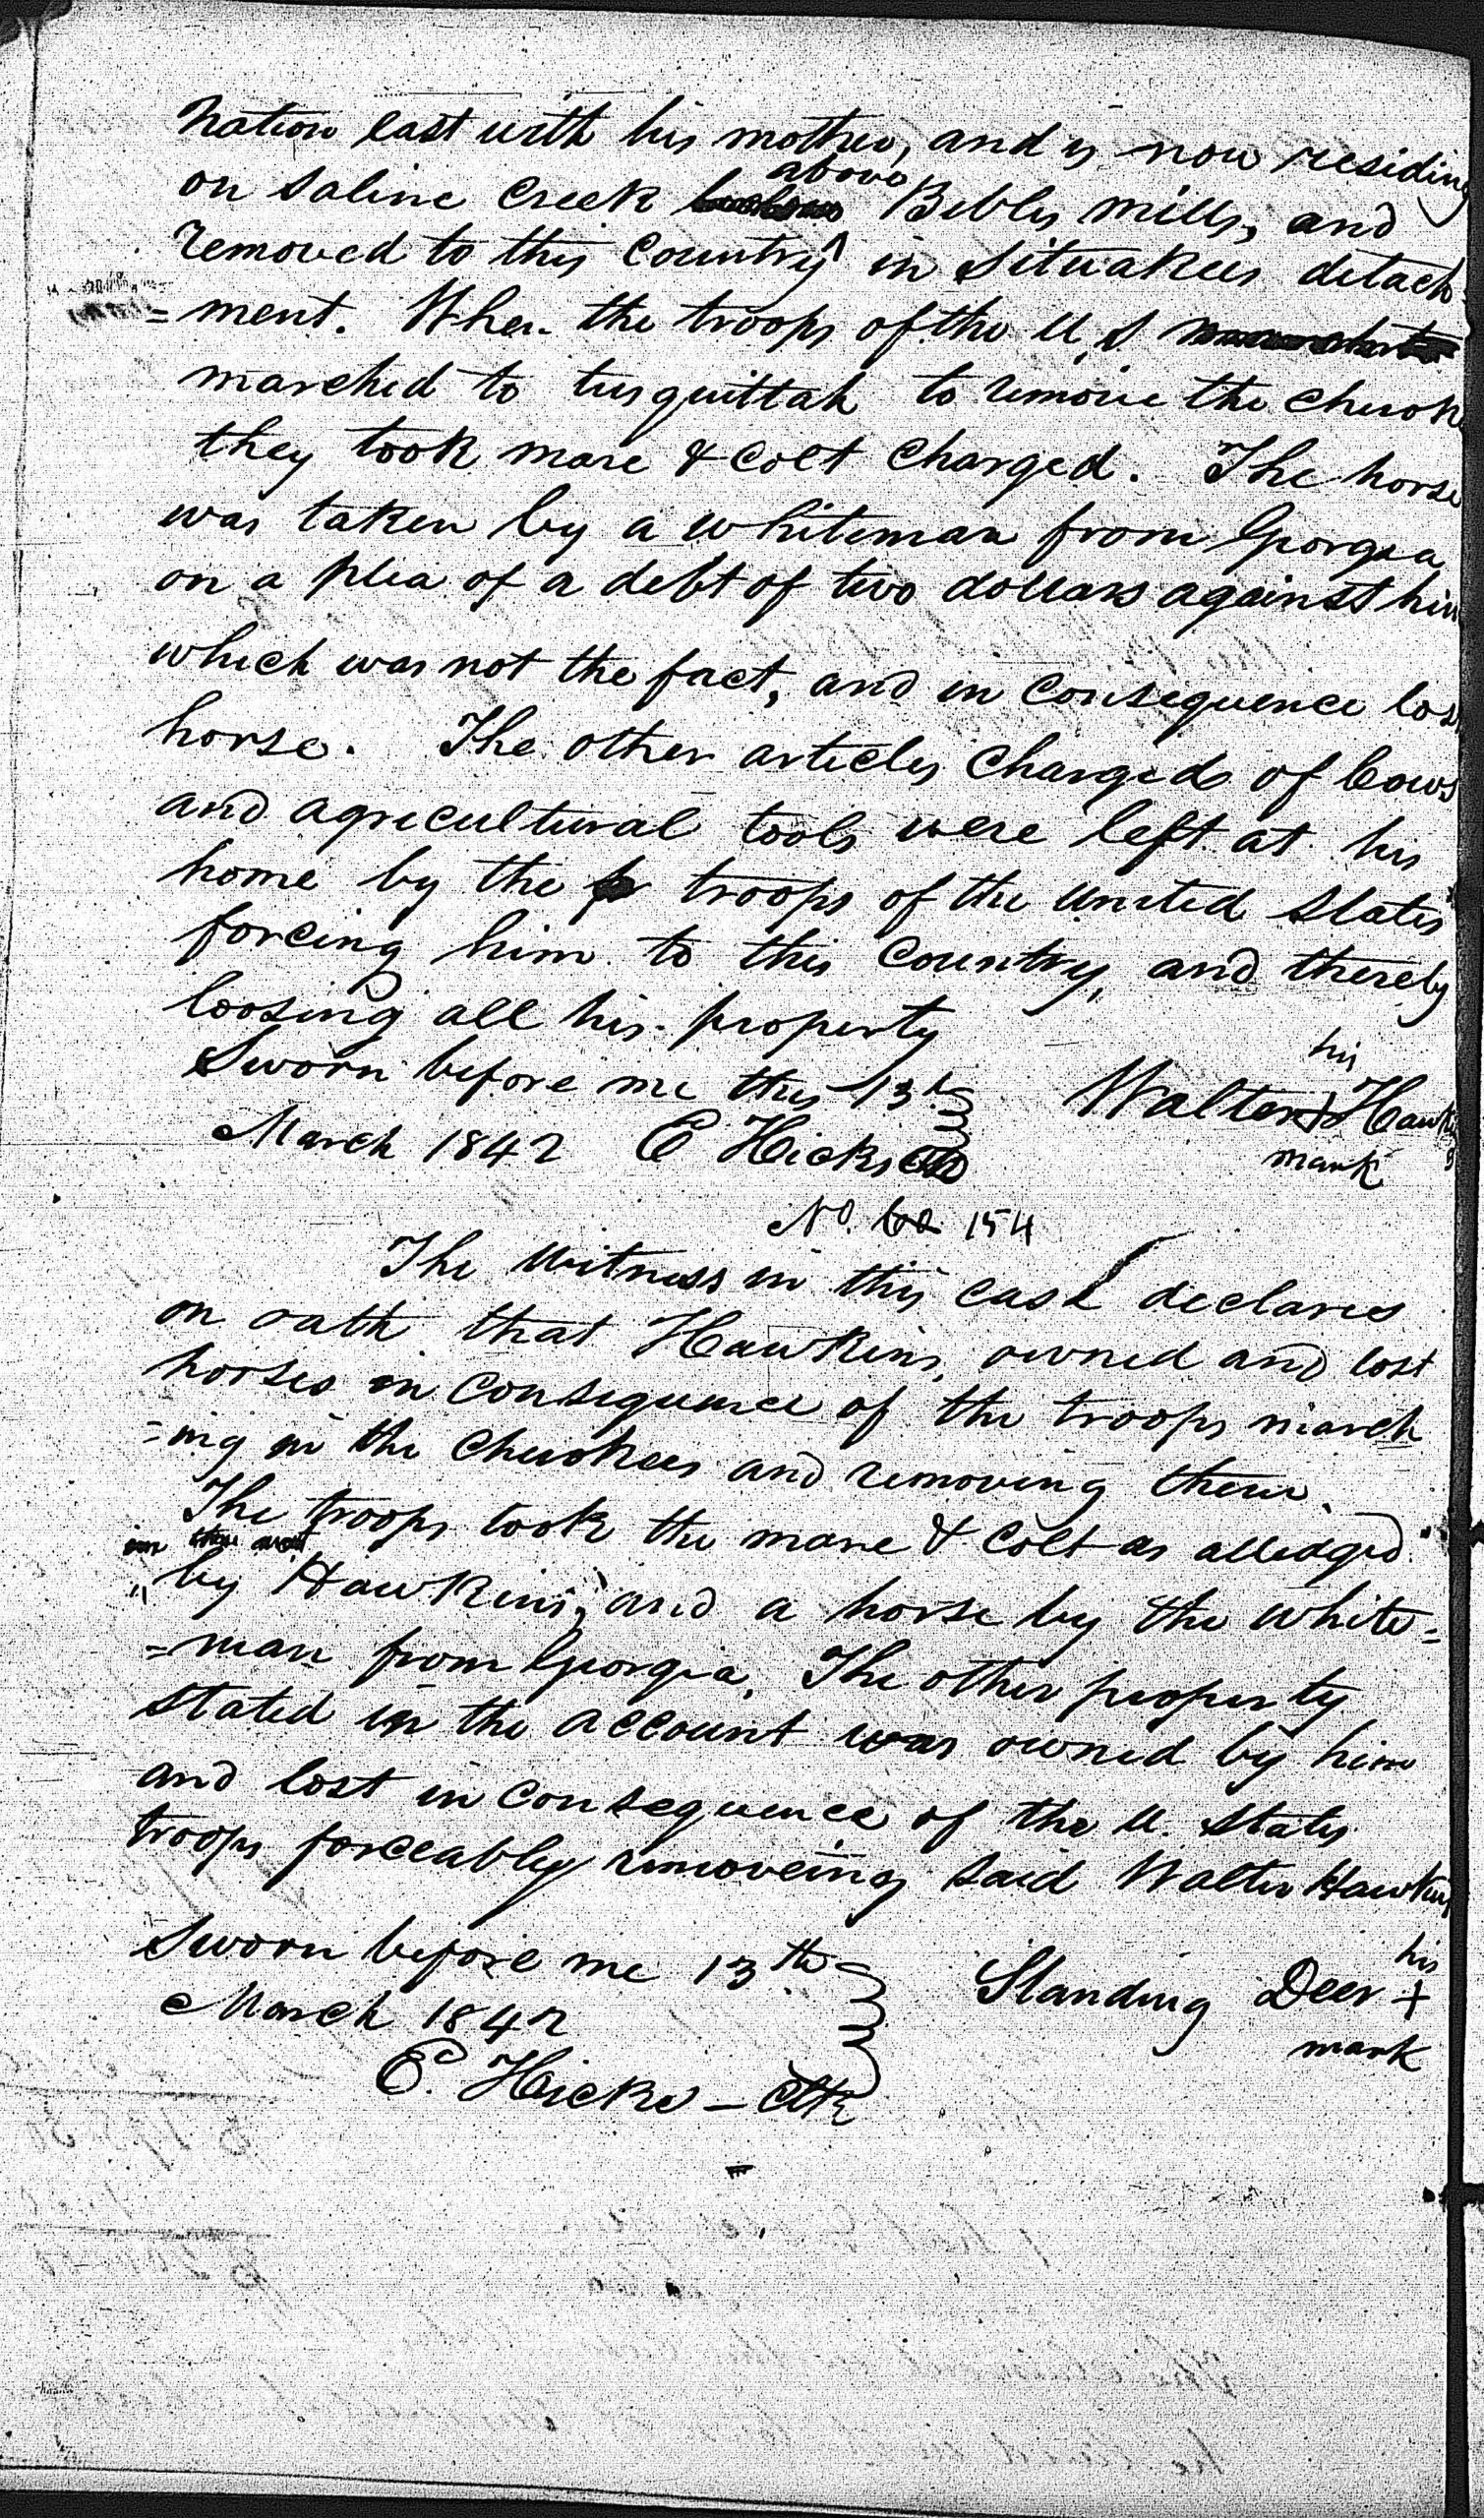 Nation east with his mother, and is now residing
on Saline Creek above Bibles mills, and
removed to this Country in Situakees detach
=ment. When the troops of the U.S
marched to tusquittah to remove the cherok
they took mare & colt charged. The horse
was taken by a whiteman from Georgia
on a plea of a debt of two dollars against him
which was not the fact, and in consequence lost
horse. The other articles charged of Cows
and agricultural tools were left at his
home by the troops of the United States
forcing him to this Country, and thereby
loosing all his property
Sworn before me this 13th
March 1842 E Hicks Clk
his
Walter + Hawkins
mark
No. 154
The Witness in this case declares
on oath that Hawkins owned and lost
horses in consequence of the troops march
=ing in the Cherokees and removing them.
The troops took the mare & Colt as alledged
by Hawkins, and a horse by the white=
=man from Georgia. The other property
stated in the account was owned by him
and lost in consequence of the U. States
troops forceably removeing said Walter Hawkins
Sworn before me 13th
March 1842
E. Hicks - Clk
his
Standing Deer +
mark